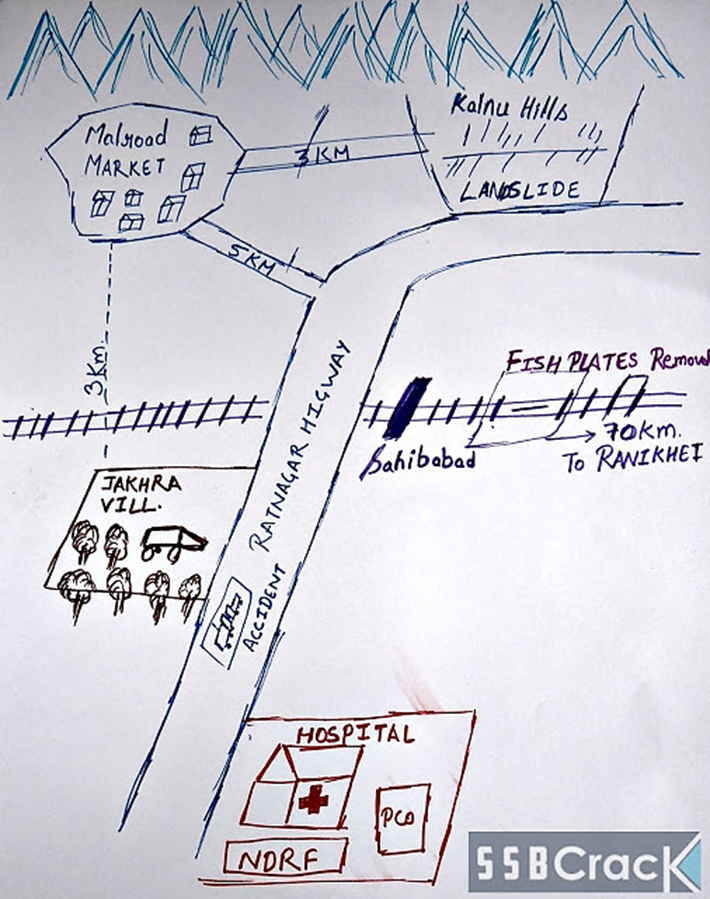 Kalnu Hills
Malroad
MARKET
3 KM
LANDSLIDE
5 KM
3 Km.
RATNAGAR HIGWAY
FISH PLATES Remov
Sahibabad
70 Km.
To RANIKHET
JAKHRA
VILL.
ACCIDENT
HOSPITAL
PCO
NDRF
SSBCracK